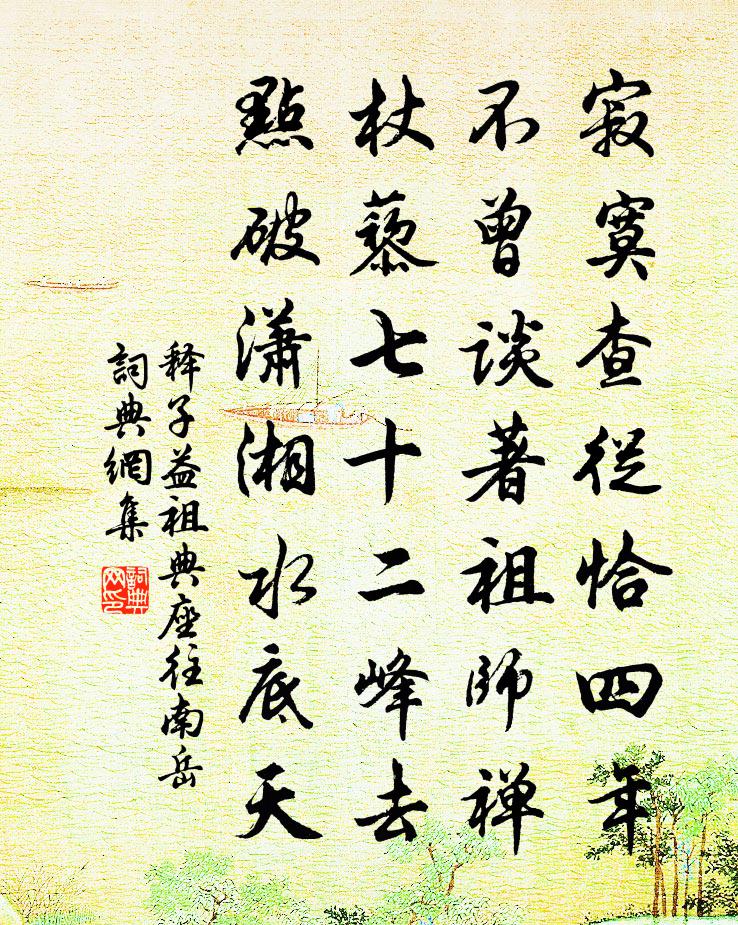 寂寞查從恰四年
不曾談著祖師禅
杖藜七十二峰去
點破瀟湘水底天
释子益祖典座往南岳
詞典網集
詞典网印